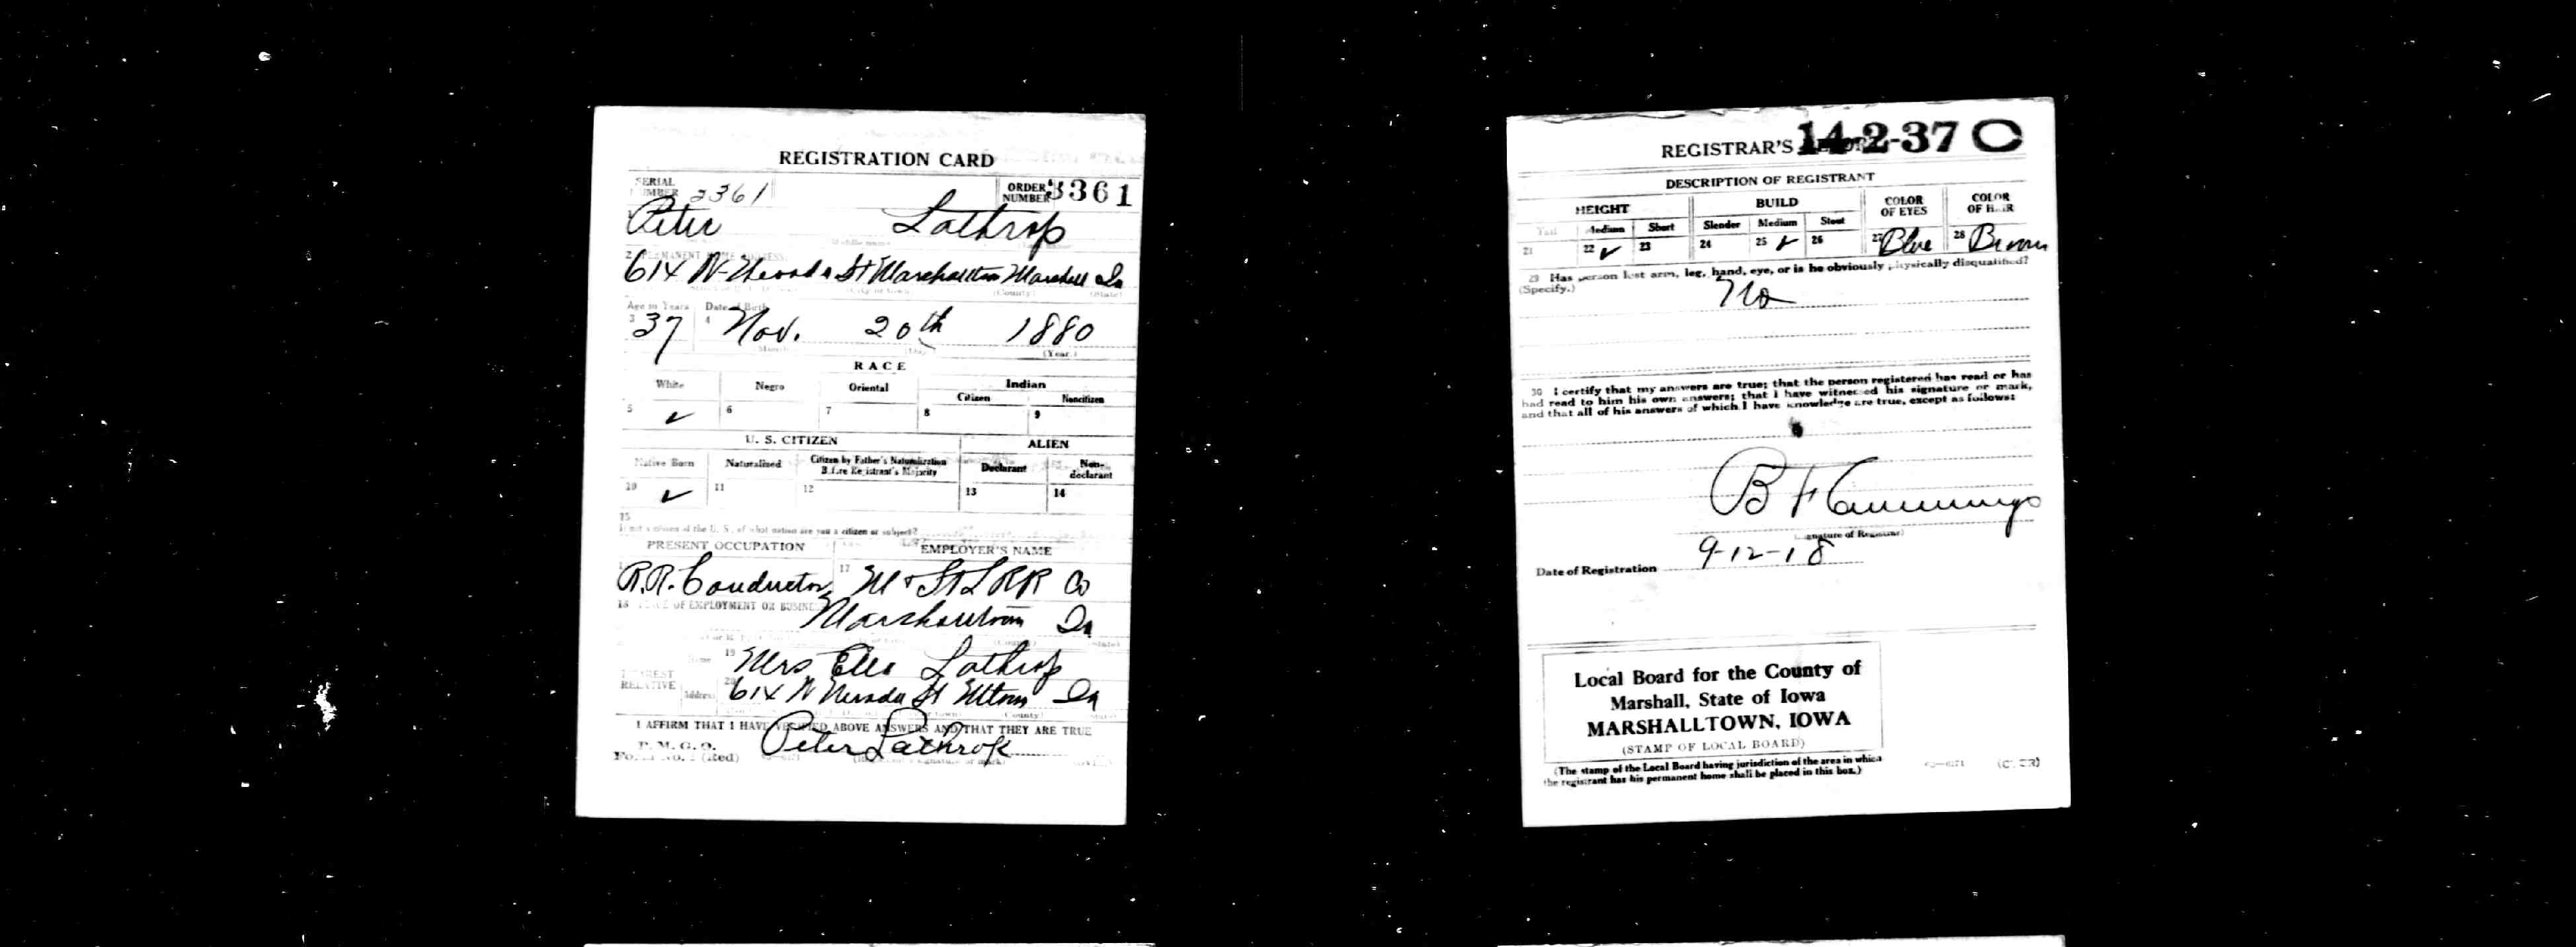 REGISTRATION CARD
SERIAL NUMBER 2361 ORDER NUMBER 3361
Peter Lathrop
2 PERMANENT HOME ADDRESS
614 N St Marshalltown Marshall Ia
(City or town) (County) (State)
Age in Years Date of Birth
3 37 4 Nov. 20th 1880
Month (Day) (Year.)
RACE
White Negro Oriental Indian
Citizen Noncitizen
5 ✓ 6 7 8 9
U. S. CITIZEN ALIEN
Native Born Naturalized Citizen by Father's Naturalization Before Registrant's Majority Declarant Non-declarant
10 ✓ 11 12 13 14
15
If not a citizen of the U. S., of what nation are you a citizen or subject?
PRESENT OCCUPATION EMPLOYER'S NAME
R.R. Conductor 17 M & St L RR Co
18 PLACE OF EMPLOYMENT OR BUSINESS
Marshalltown Ia
(County) (State)
Name 19 Mrs Ella Lathrop
NEAREST RELATIVE
Address 20 614 N Nevada St Mtown Ia
(County)
I AFFIRM THAT I HAVE VERIFIED ABOVE ANSWERS AND THAT THEY ARE TRUE
P. M. G. O.
Form No. 1 (Red)
Peter Lathrop
(Registrant's signature or mark)
REGISTRAR'S REPORT 14-2-37 C
DESCRIPTION OF REGISTRANT
HEIGHT BUILD COLOR OF EYES COLOR OF HAIR
Tall Medium Short Slender Medium Stout
21 22 ✓ 23 24 25 ✓ 26 27 Blue 28 Brown
29 Has person lost arm, leg, hand, eye, or is he obviously physically disqualified?
(Specify.)
No
30 I certify that my answers are true; that the person registered has read or has
had read to him his own answers; that I have witnessed his signature or mark,
and that all of his answers of which I have knowledge are true, except as follows:
B F Cummings
(Signature of Registrar)
Date of Registration 9-12-18
Local Board for the County of
Marshall, State of Iowa
MARSHALLTOWN, IOWA
(STAMP OF LOCAL BOARD)
(The stamp of the Local Board having jurisdiction of the area in which
the registrant has his permanent home shall be placed in this box.)
(OVER)